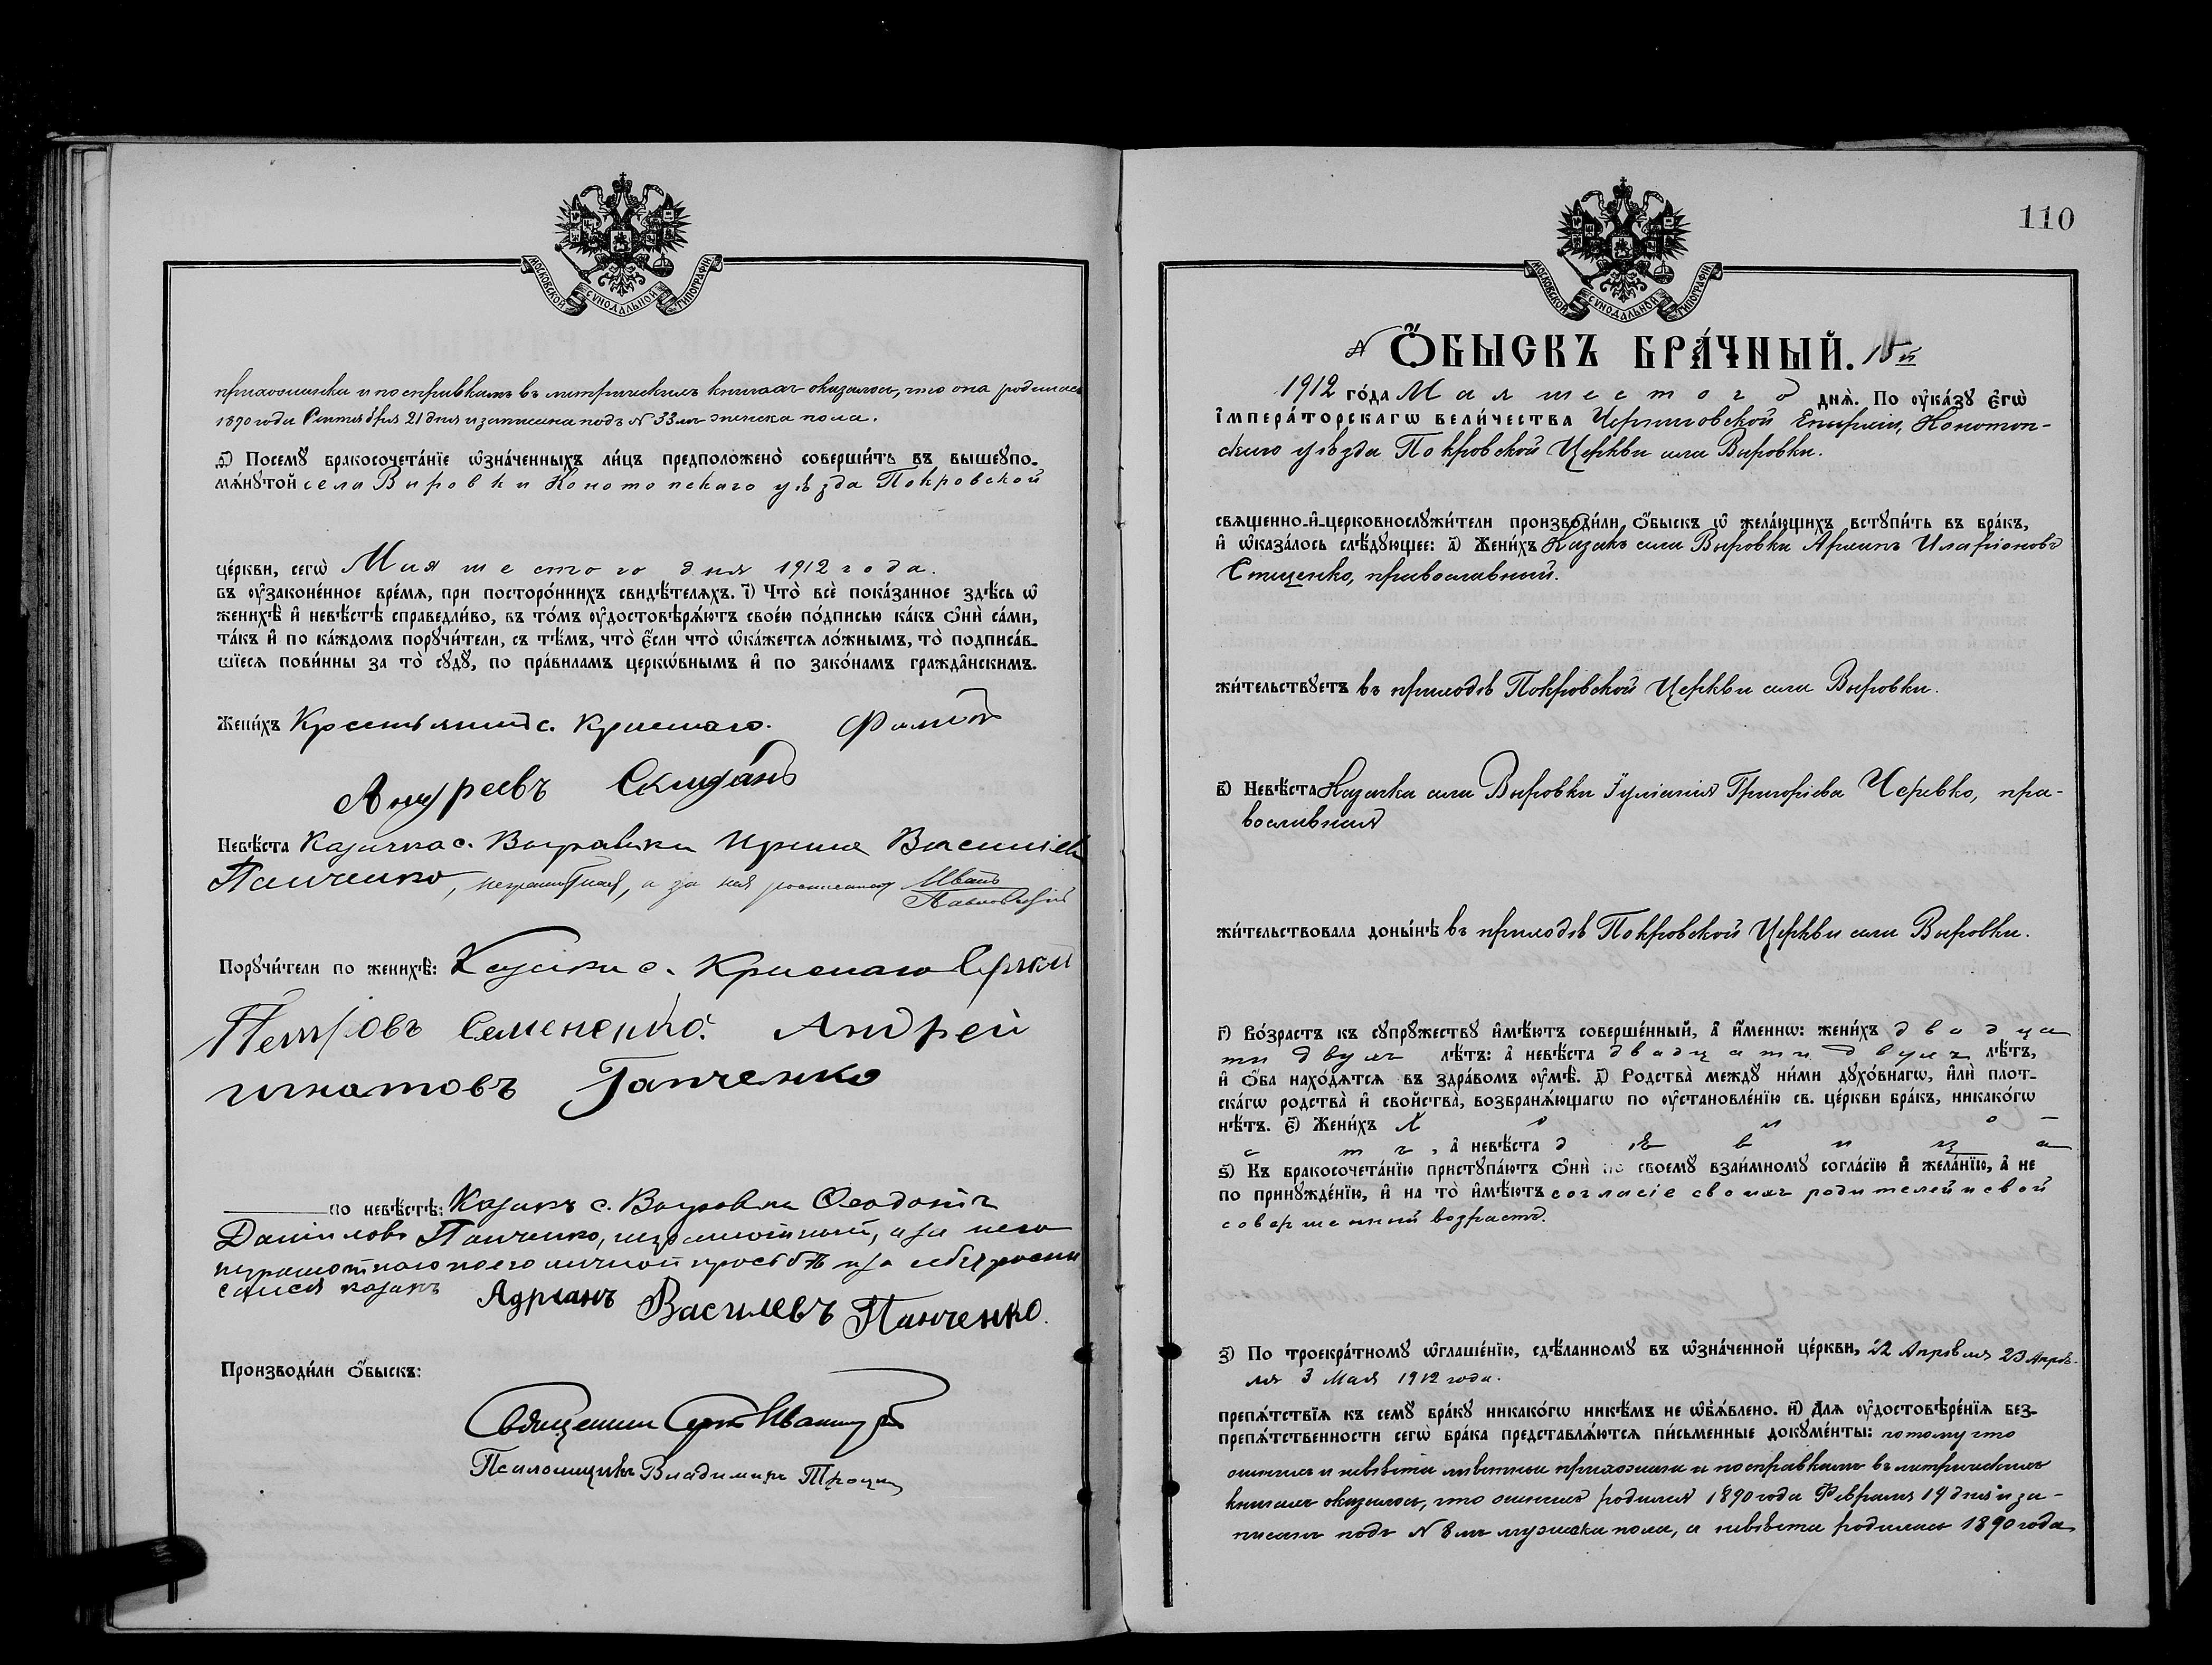 МОСКОВСКОЙ СѴНОДАЛЬНОЙ ТИПОГРАФІИ
прихожанка и по справкамъ въ метрическихъ книгахъ оказалось, что она родилась
1890 года Сентября 21 дня и записана подъ № 33мъ женска пола.
ѳ҃) Посемꙋ бракосочета́нїе ѡзна́ченныхъ ли́цъ предположено̀ соверши́ть въ вышеꙋпо-
мѧ́нꙋтой села Выровки Конотопскаго уѣзда Покровской
це́ркви, сегѡ̀ Мая шестого дня 1912 года.
въ ᲂу҆законе́нное вре́мѧ, при посторо́ннихъ свидѣ́телѧхъ. і҃) Что̀ всѐ пока́занное здѣ́сь ѡ҆
женихѣ̀ и҆ невѣ́стѣ справедли́во, въ то́мъ ᲂу҆достовѣрѧ́ютъ свое́ю по́дписью ка́къ ѻ҆нѝ са́ми,
та́къ и҆ по ка́ждомъ порꙋчи́тели, съ тѣ́мъ, что̀ є҆́сли что̀ ѡ҆ка́жетсѧ ло́жнымъ, то̀ подписа́в-
шїесѧ пови́нны за то̀ сꙋдꙋ̀, по пра́виламъ церкѡ́внымъ и҆ по зако́намъ гражда́нскимъ.
Жени́хъ Крестьянинъ с. Краснаго.
Андреевъ Скиданъ
Невѣ́ста Казачка с. Выровки Ирина
Панченко, неграмотная, а за нея Иванъ
Порꙋчи́тели по женихѣ̀: Казаки с. Краснаго
Петровъ Семененко. Андрей
Игнатовъ Ганченко
по невѣ́стѣ: Казакъ с. Выровки Ѳеодотъ
Даниловъ Панченко, неграмотный, а за него
неграмотнаго по его личной просьбѣ и за себя роспи
сался казакъ Адрианъ Василевъ Панченко.
Производи́ли ѻ҆́быскъ:
Священникъ
Псаломщикъ Владимиръ
110
МОСКОВСКОЙ СѴНОДАЛЬНОЙ ТИПОГРАФІИ
Ѻ҆́БЫСКЪ БРА́ЧНЫЙ.
1912 го́да Мая шестого днѧ̀. По ᲂу҆ка́зꙋ є҆гѡ̀
і҆мпера́торскагѡ вели́чества Черниговской Епархіи, Конотоп-
скаго уѣзда Покровской Церкви села Выровки.
свѧщенно-и҆-церковнослꙋжи́тели производи́ли ѻ҆́быскъ ѡ҆ жела́ющихъ встꙋпи́ть въ бра́къ,
и҆ ѡ҆каза́лось слѣ́дꙋющее: а҃) Жени́хъ Казакъ села Выровки Иларіоновъ
Стиценко, православный.
жи́тельствꙋетъ въ приходѣ Покровской Церкви села Выровки.
в҃) Невѣ́ста Казачка села Выровки Іуліанія Григоріева Черевко, пра-
вославная
жи́тельствовала доны́нѣ въ приходѣ Покровской Церкви села Выровки.
г҃) Во́зрастъ къ сꙋпрꙋ́жествꙋ и҆мѣ́ютъ соверше́нный, а҆ и҆́меннѡ: жени́хъ двадца
ти двухъ лѣ́тъ: а҆ невѣ́ста двадцати двухъ лѣ́тъ,
и҆ ѻ҆́ба нахо́дѧтсѧ въ здра́вомъ ᲂу҆мѣ̀. д҃) Родства̀ междꙋ̀ ни́ми дꙋхо́внагѡ, и҆лѝ плот-
ска́гѡ родства̀ и҆ свойства̀, возбранѧ́ющагѡ по ᲂу҆становле́нїю св. це́ркви бра́къ, никако́гѡ
нѣ́тъ. є҃) Жени́хъ холо-
стъ, а҆ невѣ́ста дѣвица
ѕ҃) Къ бракосочета́нїю пристꙋпа́ютъ ѻ҆нѝ по своемꙋ̀ взаи́мномꙋ согла́сїю и҆ жела́нїю, а҆ не
по принꙋжде́нїю, и҆ на то̀ и҆мѣ́ютъ согласіе своихъ родителей и свой
совершенный возрастъ.
з҃) По троекра́тномꙋ ѡ҆глаше́нїю, сдѣ́ланномꙋ въ ѡ҆зна́ченной це́ркви, 22 Апрѣля 23 Апрѣ-
ля 3 Мая 1912 года.
препѧ́тствїѧ къ семꙋ̀ бра́кꙋ никако́гѡ никѣ́мъ не ѡ҆б̾ѧ́влено. и҃) Длѧ ᲂу҆достовѣре́нїѧ без-
препѧ́тственности сегѡ̀ бра́ка представлѧ́ютсѧ пи́сьменные докꙋме́нты: потому что
женихъ и невѣста мѣстные прихожане и по справкамъ въ метрическихъ
книгахъ оказалось, что женихъ родился 1890 года Февраля 19 дня и за-
писанъ подъ № 8мъ мужеска пола, а невѣста родилась 1890 года